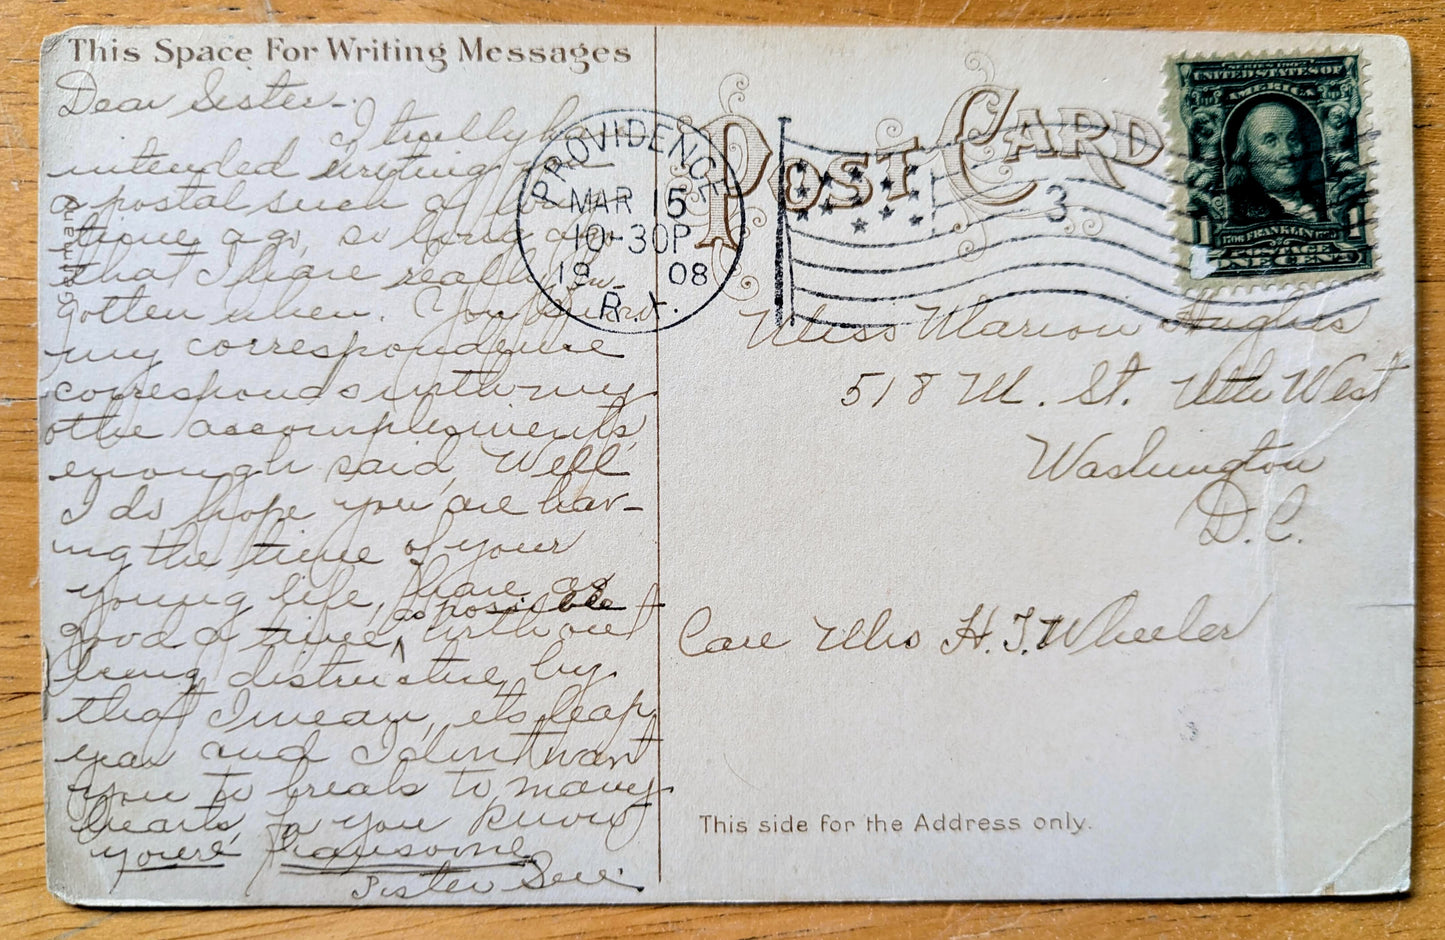 This Space For Writing Messages
Dear Sister-
I trully
intended writing
a postal such a
time ago, so long ago
that I have really
gotten when. You
my correspondence
corresponds with my
othe accomplements,
enough said, Well
I do hope you are hav-
ing the time of your
young life, have as
good a time, as possible without
being distructive, by
that I mean, its leap
year and I dont want
you to break to many
hearts, for you know
youre handsome
Sister
Germany
PROVIDENCE
MAR 15
10-30P
1908
R.I.
3
POST CARD
SERIES 1902
UNITED STATES OF
AMERICA
1706 FRANKLIN 1790
1 1
ONE CENT
Miss Marion Hughes
518 M. St. Nth West
Washington
D.C.
Care Mrs H. J. Wheeler
This side for the Address only.